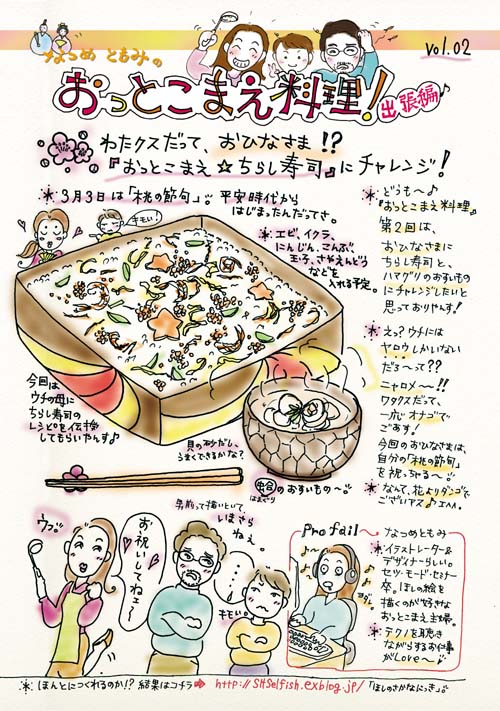 なつめ ともみの
vol.02
おっとこまえ料理!
出張編♪
わたクスだって、おひなさま!?
『おっとこまえ☆ちらし寿司』にチャレンジ!
*3月3日は「桃の節句」。平安時代から
はじまったんだってさ。
キモい!
*エビ、イクラ、
にんじん、こんぶ、
玉子、さやえんどう
などを
入れる予定。
*どうも〜♪
『おっとこまえ料理』
第2回は、
おひなさまに
ちらし寿司と、
ハマグリのおすいもの
にチャレンジしたいと
思っておりやす!
*えっ?ウチには
ヤロウしかいない
だろ〜って??
ニャロメ〜!!
ワタクスだって、
一応オナゴで
ごあす!
今回のおひなさまは、
自分の「桃の節句」
を祝っちゃる〜
*なんて、花よりダンゴで
ございヤス♪エヘヘ。
今回は
ウチの母に
ちらし寿司の
レシピを伝授
してもらいやんす♪
貝の砂だし、
うまくできるかな?
蛤のおすいもの〜
はまぐり
男前って描いといて、
しほさら
ねぇ。
ウフ
お祝いしてねェ〜
・・・・
キモい。
Profail〜
なつめともみ
*イラストレーター&
デザイナーらしい。
セツ・モード・セミナー
卒。ほしの絵を
描くのが好きな
おっとこまえ主婦。
*テクノを聴き
ながらするお仕事
がLove〜
*ほんとにつくれるのか!? 結果はコチラ➡ http://SHSelfish.exblog.jp/「ほしのさかなにっき」